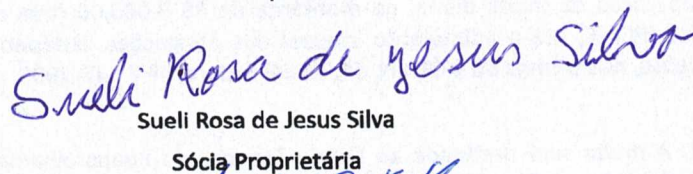 Sueli Rosa de Jesus Silva
Sueli Rosa de Jesus Silva
Sócia Proprietária